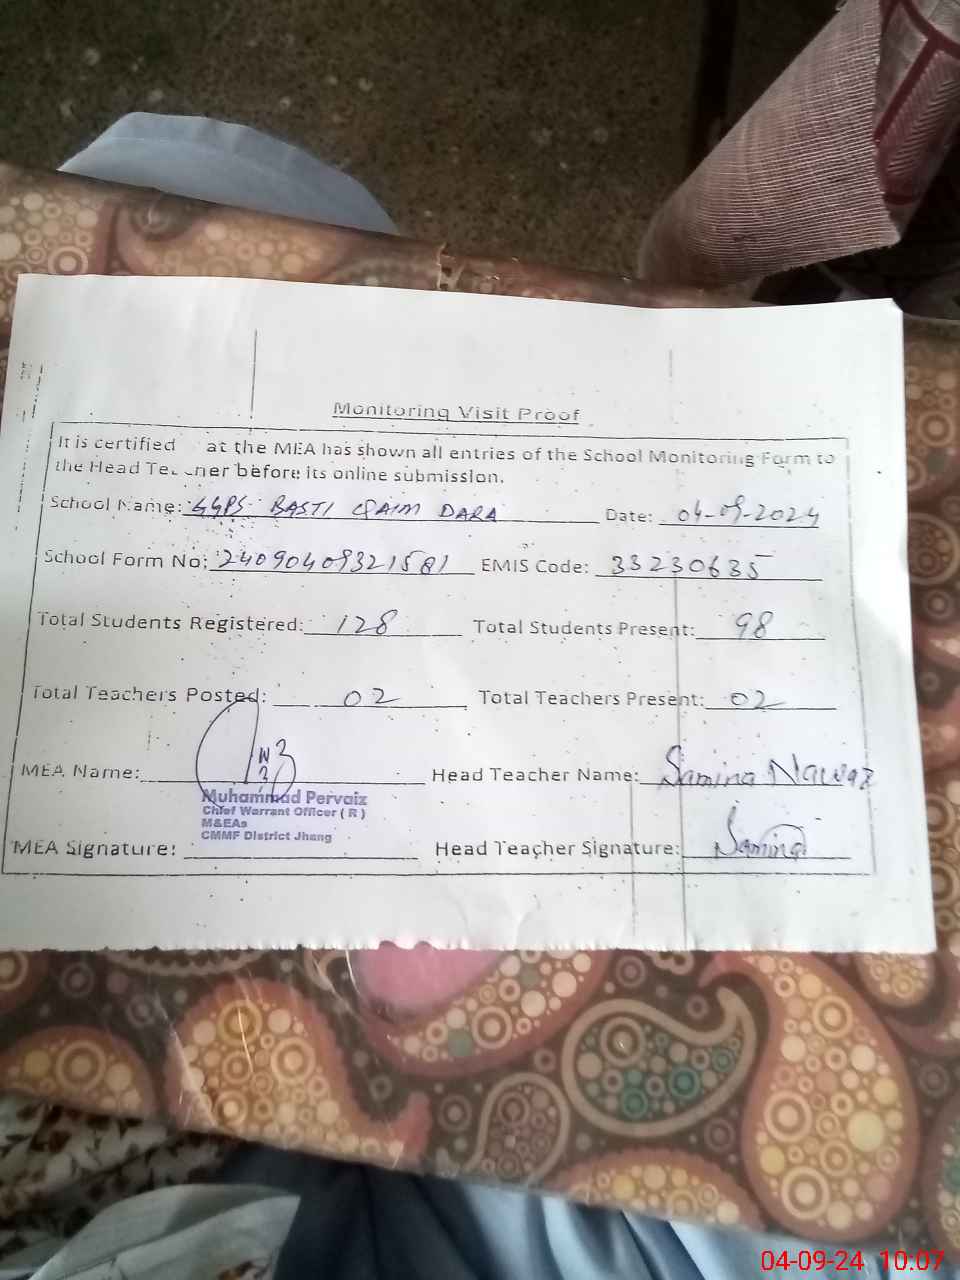 Monitoring Visit Proof
It is certified at the MEA has shown all entries of the School Monitoring Form to
the Head before its online submission.
School Name: GGPS BASTI QAIM DARA Date: 04-09-2024
School Form No: 24090409321581 EMIS Code: 33230635
Total Students Registered: 128 Total Students Present: 98
Total Teachers Posted: 02 Total Teachers Present: 02
MEA Name: Head Teacher Name: Samina Nawaz
Muhammad Pervaiz
Chief Warrant Officer ( R )
M&EAs
CMMF District Jhang
MEA Signature: Head Teacher Signature: Samina
04-09-24 10:07